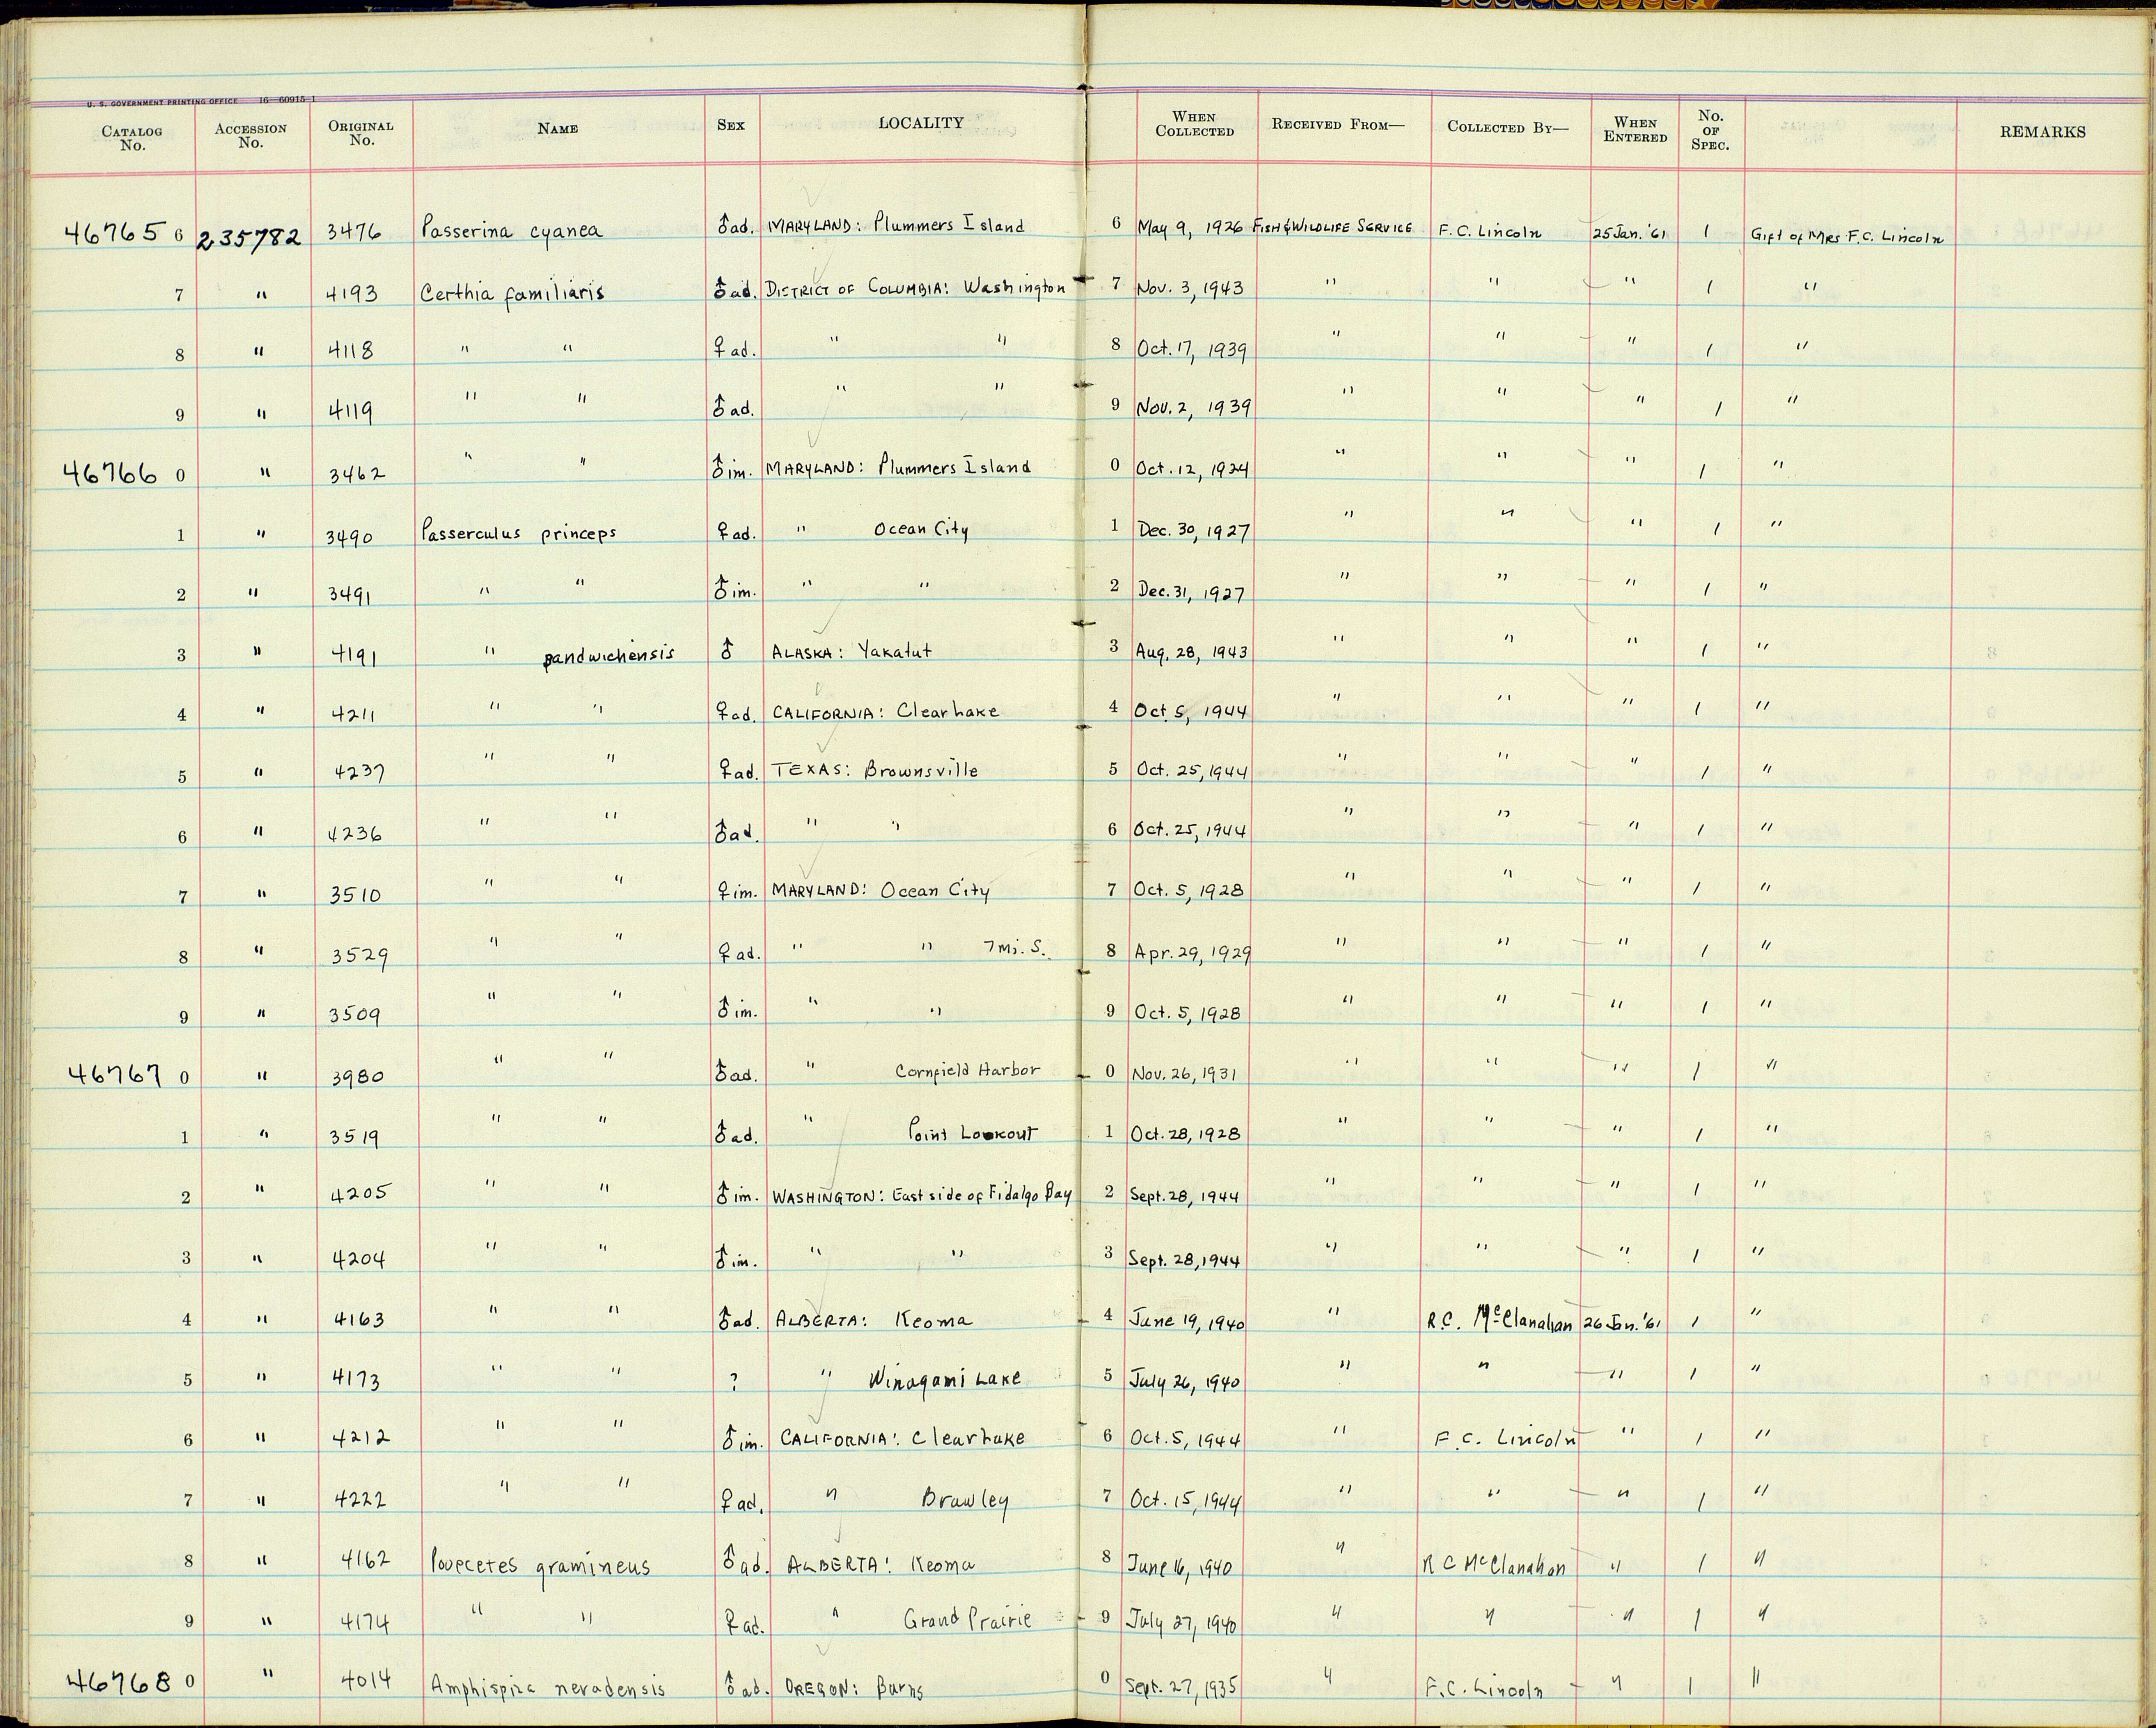 U. S. GOVERNMENT PRINTING OFFICE 16—60915-1
CATALOG No. ACCESSION No. ORIGINAL No. NAME SEX LOCALITY WHEN COLLECTED RECEIVED FROM— COLLECTED BY— WHEN ENTERED No. OF SPEC. REMARKS
46765 6 235782 3476 Passerina cyanea ♂ad. MARYLAND: Plummers Island 6 May 9, 1926 FISH & WILDLIFE SERVICE F.C. Lincoln 25 Jan. '61 1 Gift of Mrs F.C. Lincoln
7 " 4193 Certhia familiaris ♂ad. DISTRICT OF COLUMBIA: Washington 7 Nov. 3, 1943 " " " 1 "
8 " 4118 " " ♀ad. " " 8 Oct. 17, 1939 " " " 1 "
9 " 4119 " " ♂ad. " " 9 Nov. 2, 1939 " " " 1 "
46766 0 " 3462 " " ♂im. MARYLAND: Plummers Island 0 Oct. 12, 1924 " " " 1 "
1 " 3490 Passerculus princeps ♀ad. " Ocean City 1 Dec. 30, 1927 " " " 1 "
2 " 3491 " " ♂im. " " 2 Dec. 31, 1927 " " " 1 "
3 " 4191 " sandwichensis ♂ ALASKA: Yakatut 3 Aug. 28, 1943 " " " 1 "
4 " 4211 " " ♀ad. CALIFORNIA: Clear Lake 4 Oct. 5, 1944 " " " 1 "
5 " 4237 " " ♀ad. TEXAS: Brownsville 5 Oct. 25, 1944 " " " 1 "
6 " 4236 " " ♂ad. " " 6 Oct. 25, 1944 " " " 1 "
7 " 3510 " " ♀im. MARYLAND: Ocean City 7 Oct. 5, 1928 " " " 1 "
8 " 3529 " " ♀ad. " " 7 mi. S. 8 Apr. 29, 1929 " " " 1 "
9 " 3509 " " ♂im. " " 9 Oct. 5, 1928 " " " 1 "
46767 0 " 3980 " " ♂ad. " Cornfield Harbor 0 Nov. 26, 1931 " " " 1 "
1 " 3519 " " ♂ad. " Point Lookout 1 Oct. 28, 1928 " " " 1 "
2 " 4205 " " ♂im. WASHINGTON: East side of Fidalgo Bay 2 Sept. 28, 1944 " " " 1 "
3 " 4204 " " ♂im. " " 3 Sept. 28, 1944 " " " 1 "
4 " 4163 " " ♂ad. ALBERTA: Keoma 4 June 19, 1940 " R.C. McClanahan 26 Jan. '61 1 "
5 " 4173 " " ? " Winagami Lake 5 July 26, 1940 " " " 1 "
6 " 4212 " " ♂im. CALIFORNIA: Clear Lake 6 Oct. 5, 1944 " F.C. Lincoln " 1 "
7 " 4222 " " ♀ad. " Brawley 7 Oct. 15, 1944 " " " 1 "
8 " 4162 Pooecetes gramineus ♂ad. ALBERTA: Keoma 8 June 16, 1940 " R C McClanahan " 1 "
9 " 4174 " " ♀ad. " Grand Prairie 9 July 27, 1940 " " " 1 "
46768 0 " 4014 Amphispiza nevadensis ♂ad. OREGON: Burns 0 Sept. 27, 1935 " F.C. Lincoln " 1 "